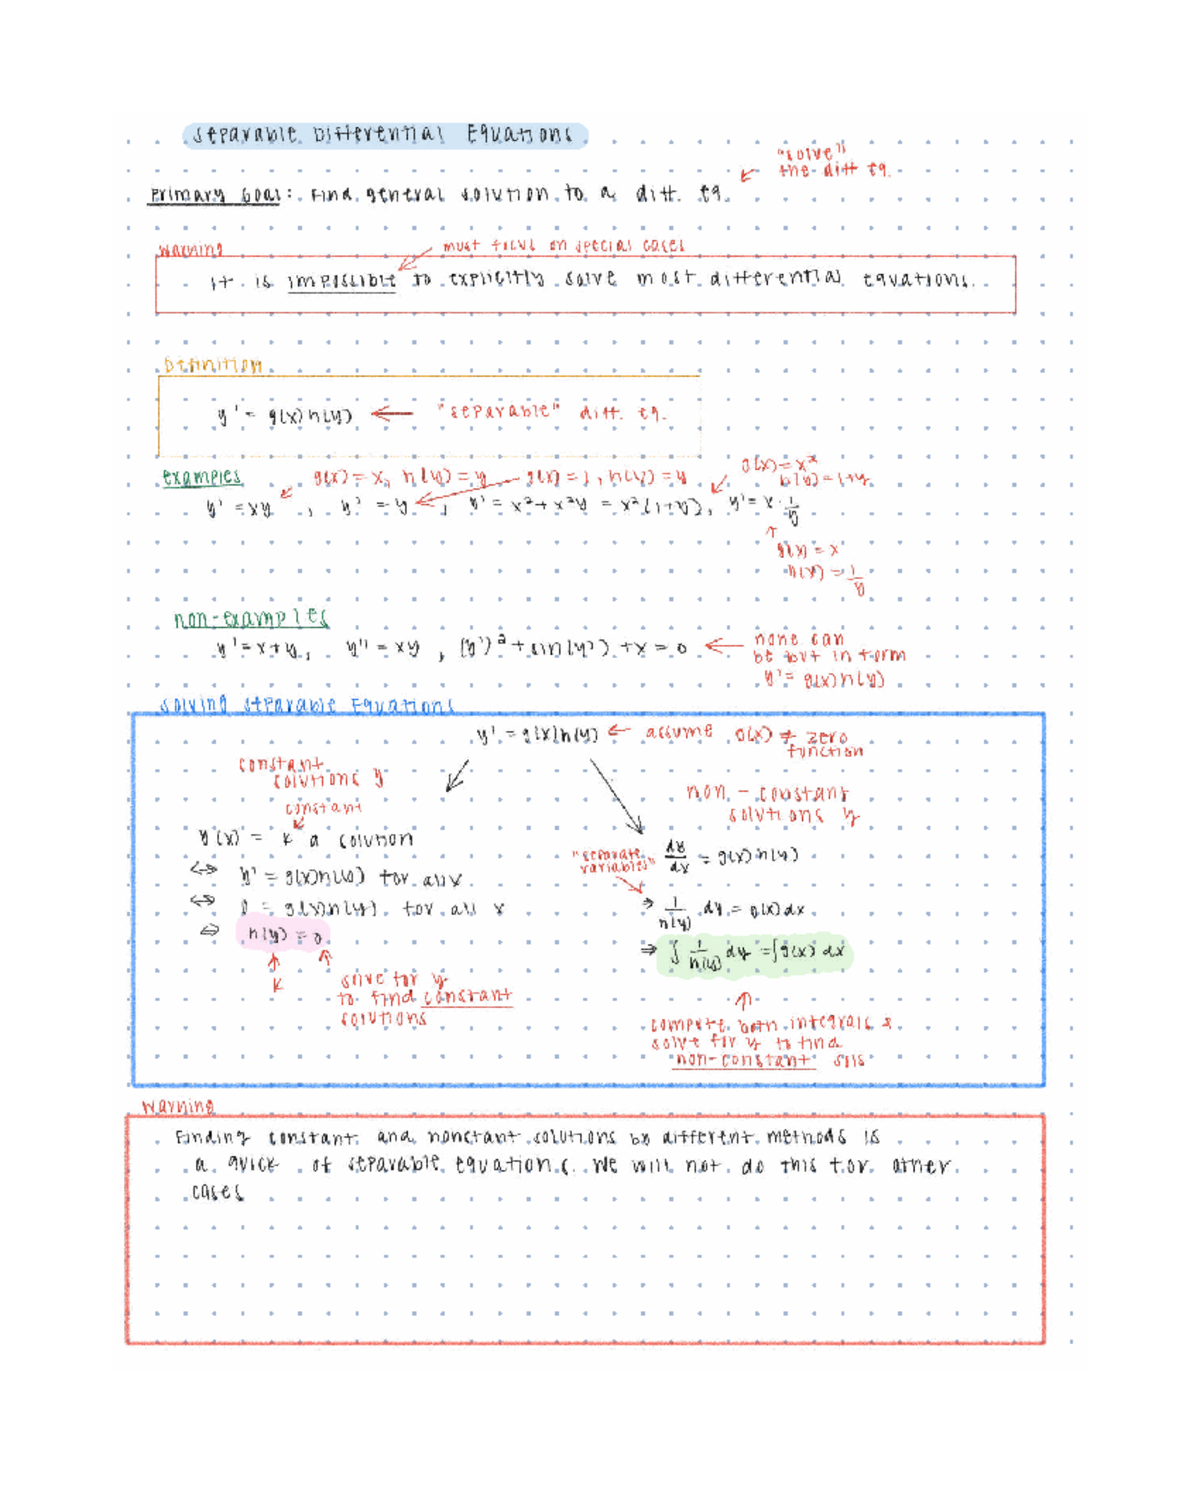 Separable Differential Equations
"solve"
the diff eq.
Primary Goal: Find general solution to a diff. eq.
Warning
must focus on special cases
It is impossible to explicitly solve most differential equations.
Definition
y' = g(x)h(y) ← "separable" diff. eq.
examples
g(x) = x, h(y) = y
g(x) = 1, h(y) = y
g(x) = x²
h(y) = 1+y
y' = xy , y' = y , y' = x² + x²y = x²(1+y), y' = x · 1/y
g(x) = x
h(y) = 1/y
non-examples
y' = x + y, y'' = xy , (y')² + sin(y') + x = 0 ← none can
be put in form
y' = g(x)h(y)
Solving Separable Equations
y' = g(x)h(y) ← assume g(x) ≠ zero
function
constant
solutions y
constant
y(x) = k a solution
⇔ y' = g(x)h(y) for all x
⇔ 0 = g(x)h(y) for all x
⇔ h(y) = 0
k
solve for y
to find constant
solutions
non-constant
solutions y
"separate
variables"
dy/dx = g(x)h(y)
⇒ 1/h(y) dy = g(x)dx
⇒ ∫ 1/h(y) dy = ∫g(x) dx
compute both integrals &
solve for y to find
non-constant sols
Warning
Finding constant and nonctant solutions by different methods is
a quick of separable equations. We will not do this for other
cases